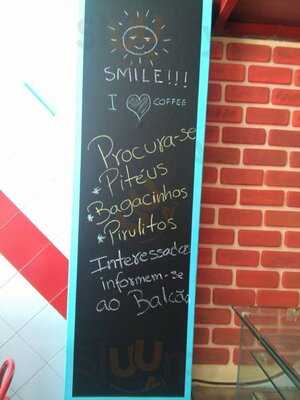 SMILE!!!
I ♥ COFFEE
Procura-se
* Pitéus
* Bagacinhos
* Pirulitos
Interessados
informem-se
ao Balcão